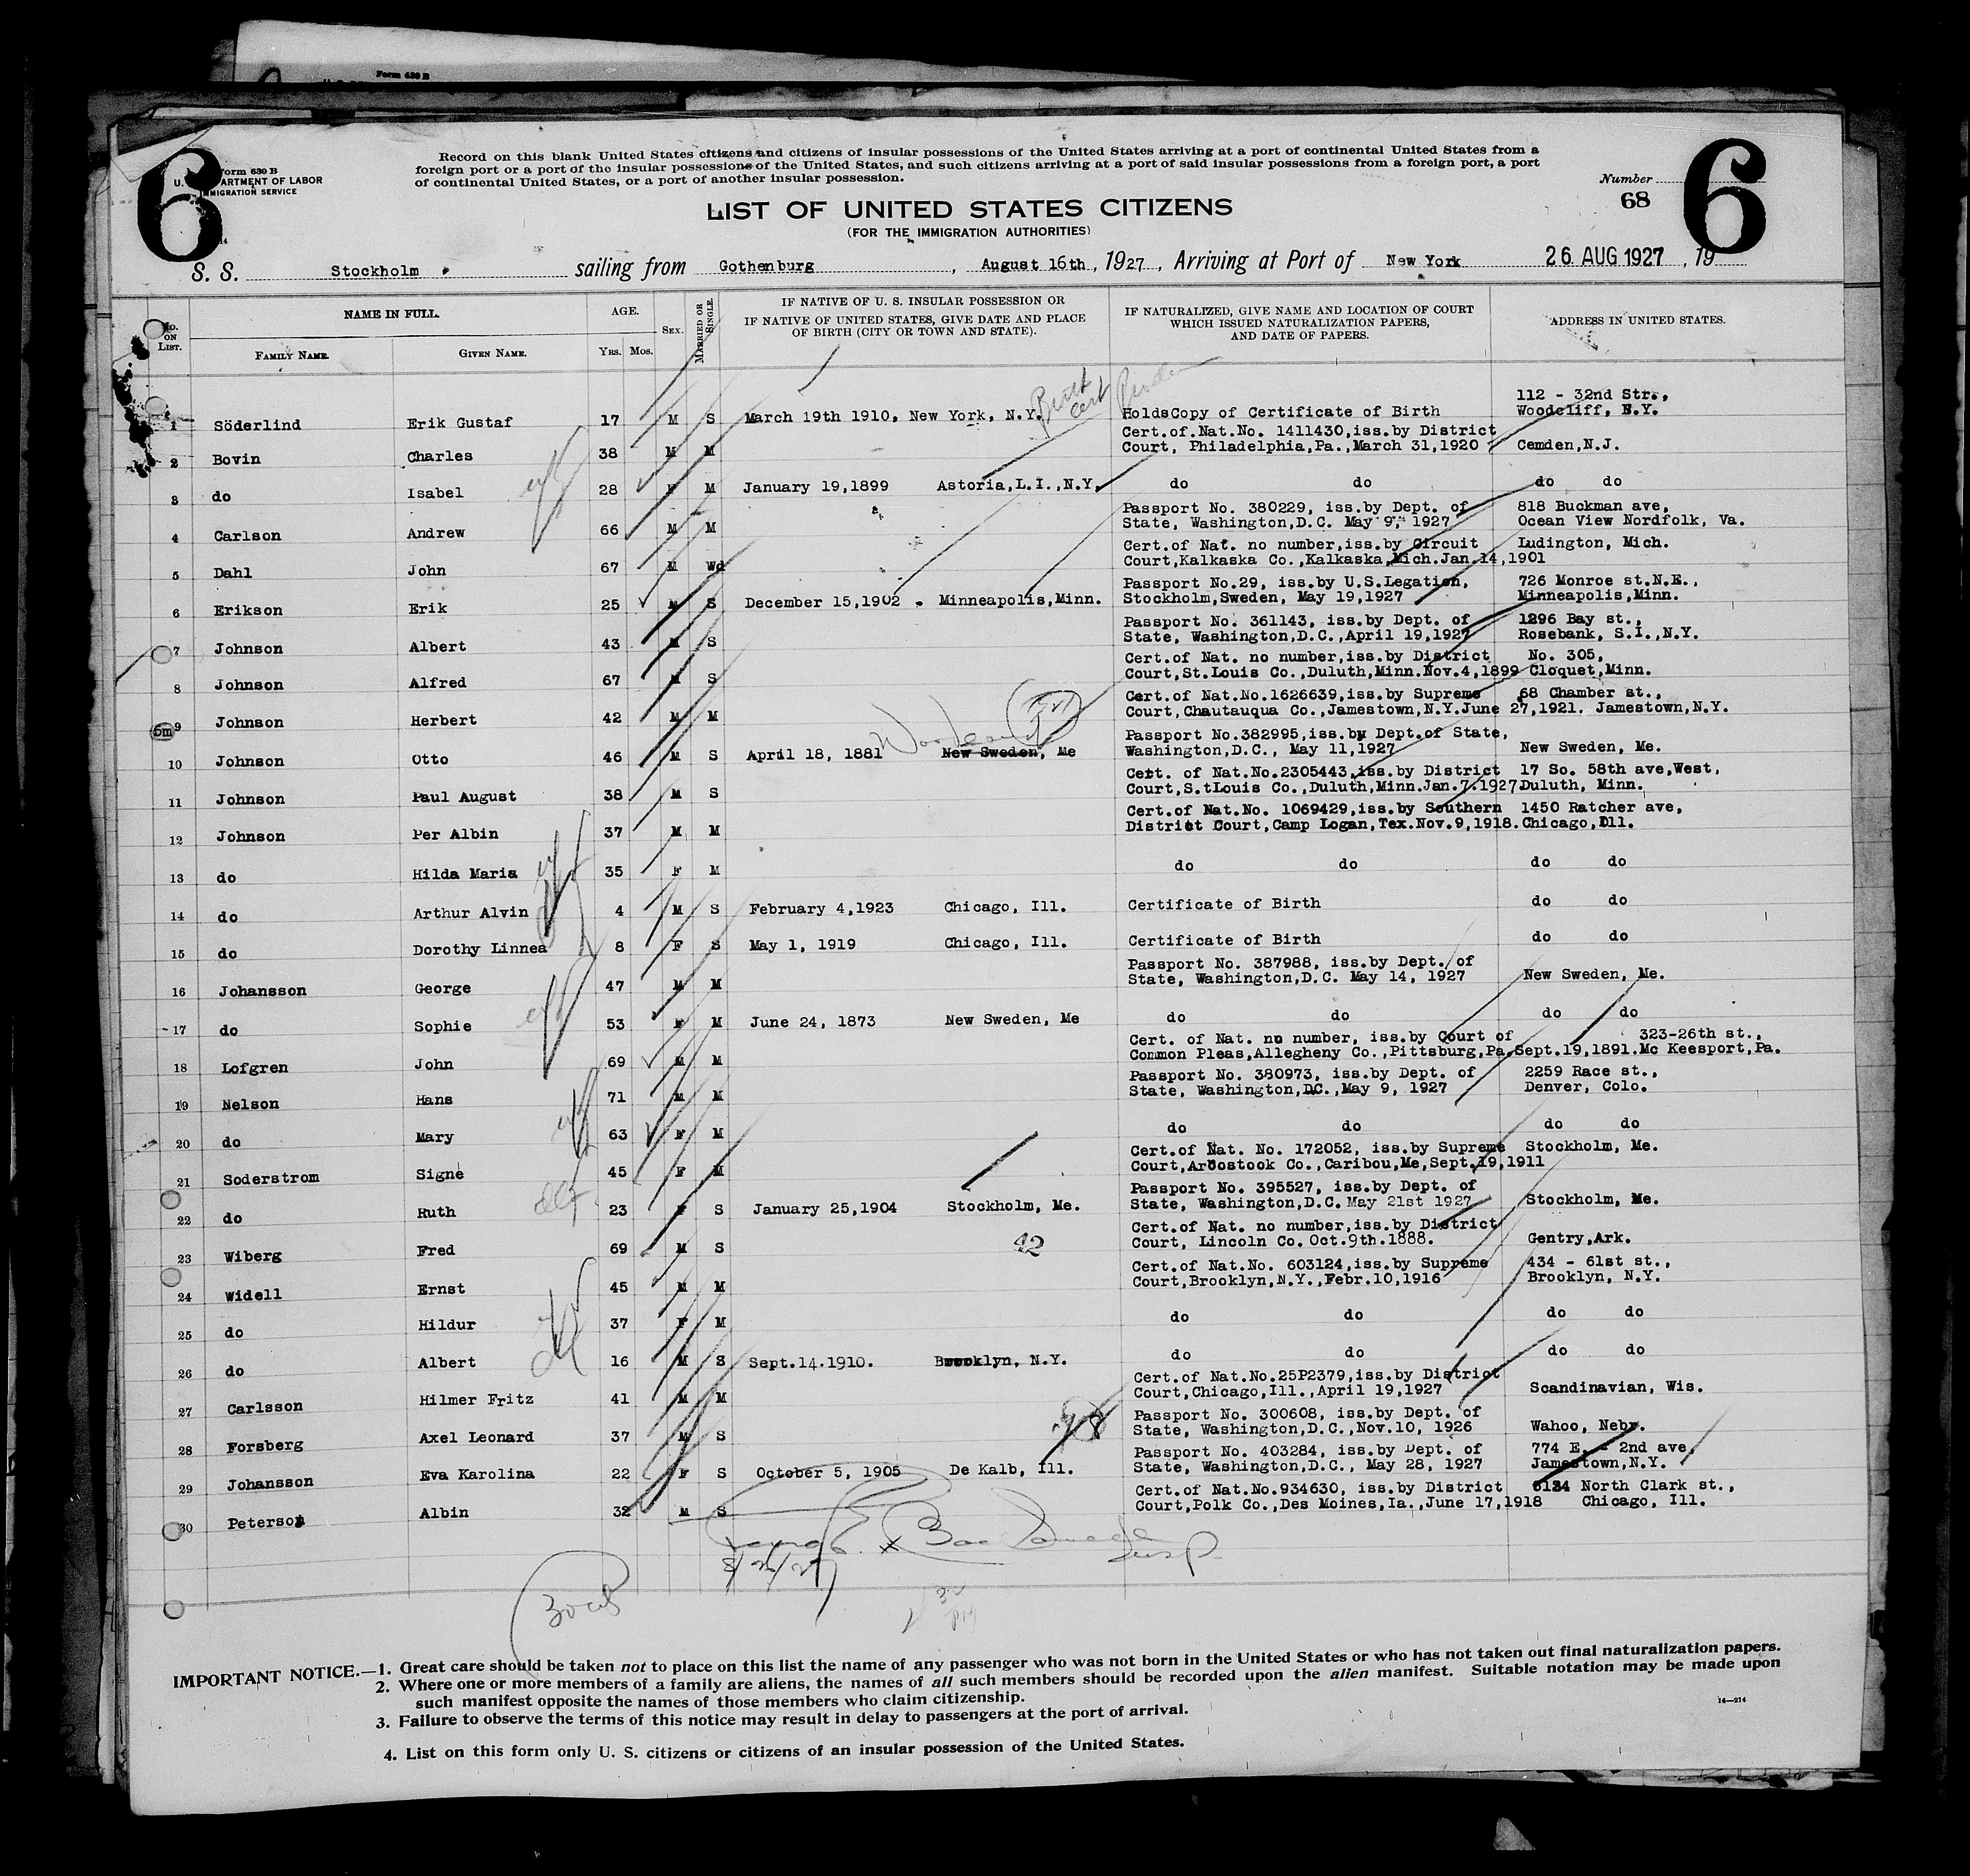 Form 630 B
6
Form 630 B
U. S. DEPARTMENT OF LABOR
IMMIGRATION SERVICE
Record on this blank United States citizens and citizens of insular possessions of the United States arriving at a port of continental United States from a
foreign port or a port of the insular possessions of the United States, and such citizens arriving at a port of said insular possessions from a foreign port, a port
of continental United States, or a port of another insular possession.
Number
68
6
LIST OF UNITED STATES CITIZENS
(FOR THE IMMIGRATION AUTHORITIES)
S. S. Stockholm sailing from Gothenburg, August 16th, 1927, Arriving at Port of New York 26 AUG 1927, 19
No. ON LIST. NAME IN FULL. FAMILY NAME. GIVEN NAME. AGE. YRS. MOS. SEX. MARRIED OR SINGLE.
IF NATIVE OF U. S. INSULAR POSSESSION OR
IF NATIVE OF UNITED STATES, GIVE DATE AND PLACE
OF BIRTH (CITY OR TOWN AND STATE).
IF NATURALIZED, GIVE NAME AND LOCATION OF COURT
WHICH ISSUED NATURALIZATION PAPERS,
AND DATE OF PAPERS.
ADDRESS IN UNITED STATES.
Birth cert
112 - 32nd Str.,
1 Söderlind Erik Gustaf 17 M S March 19th 1910, New York, N.Y. HoldsCopy of Certificate of Birth Woodcliff, N.Y.
Cert.of.Nat.No. 1411430,iss.by District
2 Bovin Charles 38 M M Court, Philadelphia,Pa.,March 31,1920 Cemden,N.J.
3 do Isabel 28 F M January 19,1899 Astoria,L.I.,N.Y. do do do do
Passport No. 380229, iss.by Dept. of 818 Buckman ave,
4 Carlson Andrew 66 M M State, Washington,D.C. May 9, 1927 Ocean View Nordfolk, Va.
Cert.of Nat. no number,iss.by Circuit Ludington, Mich.
5 Dahl John 67 M Wd Court,Kalkaska Co.,Kalkaska,Mich.Jan.14,1901
Passport No.29, iss.by U.S.Legation, 726 Monroe st.N.E.,
6 Erikson Erik 25 M S December 15,1902 . Minneapolis,Minn. Stockholm,Sweden, May 19,1927 Minneapolis,Minn.
Passport No. 361143, iss.by Dept. of 1296 Bay st.,
7 Johnson Albert 43 M S State, Washington,D.C.,April 19,1927 Rosebank, S.I.,N.Y.
Cert.of Nat. no number,iss.by District No. 305,
8 Johnson Alfred 67 M S Court,St.Louis Co.,Duluth,Minn.Nov.4,1899 Cloquet,Minn.
Cert.of Nat.No.1626639,iss.by Supreme 68 Chamber st.,
5m 9 Johnson Herbert 42 M M Court,Chautauqua Co.,Jamestown,N.Y.June 27,1921. Jamestown,N.Y.
Woodland
Passport No.382995,iss.by Dept.of State,
10 Johnson Otto 46 M S April 18, 1881 New Sweden, Me Washington,D.C., May 11,1927 New Sweden, Me.
Cert. of Nat.No.2305443,iss.by District 17 So. 58th ave,West,
11 Johnson Paul August 38 M S Court,S.tLouis Co.,Duluth,Minn.Jan.7.1927.Duluth, Minn.
Cert.of Nat.No. 1069429,iss.by Southern 1450 Ratcher ave,
12 Johnson Per Albin 37 M M District Court,Camp Logan,Tex.Nov.9,1918.Chicago,Ill.
13 do Hilda Maria 35 F M do do do do
14 do Arthur Alvin 4 M S February 4,1923 Chicago, Ill. Certificate of Birth do do
15 do Dorothy Linnea 8 F S May 1, 1919 Chicago, Ill. Certificate of Birth do do
Passport No. 387988, iss.by Dept. of
16 Johansson George 47 M M State, Washington,D.C. May 14, 1927 New Sweden, Me.
17 do Sophie 53 F M June 24, 1873 New Sweden, Me do do do do
Cert. of Nat. no number, iss.by Court of 323-26th st.,
18 Lofgren John 69 M M Common Pleas,Allegheny Co.,Pittsburg,Pa.Sept.19,1891.Mc Keesport,Pa.
Passport No. 380973, iss.by Dept. of 2259 Race st.,
19 Nelson Hans 71 M M State, Washington,DC.,May 9, 1927 Denver, Colo.
20 do Mary 63 F M do do do do
Cert.of Nat. No. 172052, iss.by Supreme Stockholm, Me.
21 Soderstrom Signe 45 F M Court,Aroostook Co.,Caribou,Me,Sept.19,1911
Passport No. 395527, iss.by Dept. of
22 do Ruth 23 F S January 25,1904 Stockholm, Me. State, Washington,D.C. May 21st 1927 Stockholm, Me.
Cert.of Nat. no number,iss.by District
23 Wiberg Fred 69 M S 42 Court, Lincoln Co. Oct.9th.1888. Gentry,Ark.
Cert.of Nat.No. 603124,iss.by Supreme 434 - 61st st.,
24 Widell Ernst 45 M M Court,Brooklyn,N.Y.,Febr.10,1916 Brooklyn, N.Y.
25 do Hildur 37 F M do do do do
26 do Albert 16 M S Sept.14.1910. Brooklyn, N.Y. do do do do
Cert.of Nat.No.25P2379,iss.by District
27 Carlsson Hilmer Fritz 41 M M Court,Chicago,Ill.,April 19,1927 Scandinavian, Wis.
Passport No. 300608, iss.by Dept. of
28 Forsberg Axel Leonard 37 M S State, Washington,D.C.,Nov.10, 1926 Wahoo, Nebr.
Passport No. 403284, iss.by Dept. of 774 E. - 2nd ave,
29 Johansson Eva Karolina 22 F S October 5, 1905 De Kalb, Ill. State, Washington,D.C., May 28, 1927 Jamestown,N.Y.
Cert.of Nat.No.934630, iss.by District 6124 North Clark st.,
30 Peterson Albin 32 M S Court,Polk Co.,Des Moines,Ia.,June 17,1918 Chicago, Ill.
Insp.
8/26/27
IMPORTANT NOTICE.—1. Great care should be taken not to place on this list the name of any passenger who was not born in the United States or who has not taken out final naturalization papers.
2. Where one or more members of a family are aliens, the names of all such members should be recorded upon the alien manifest. Suitable notation may be made upon
such manifest opposite the names of those members who claim citizenship.
3. Failure to observe the terms of this notice may result in delay to passengers at the port of arrival.
4. List on this form only U. S. citizens or citizens of an insular possession of the United States.
14—214